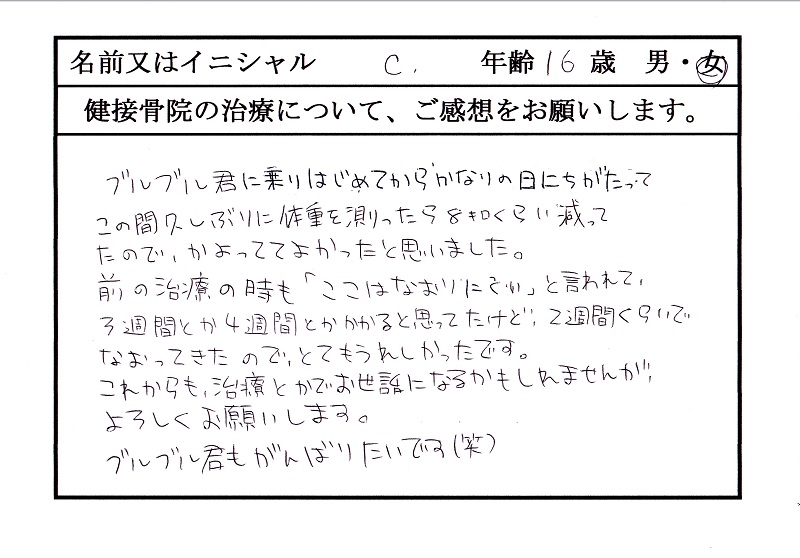 名前又はイニシャル C. 年齢 16 歳 男・女
健接骨院の治療について、ご感想をお願いします。
ブルブル君に乗りはじめてからかなりの日にちがたって
この間久しぶりに体重を測ったら8キロくらい減って
たので、かよっててよかったと思いました。
前の治療の時も「ここはなおりにくい」と言われて、
3週間とか4週間とかかかると思ってたけど、2週間くらいで
なおってきたので、とてもうれしかったです。
これからも、治療とかでお世話になるかもしれませんが、
よろしくお願いします。
ブルブル君もがんばりたいです(笑)